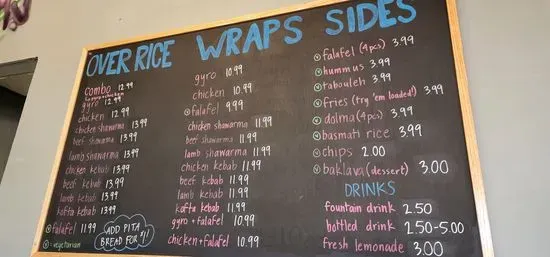 OVER RICE
combo 12.99
gyro 12.99
chicken 12.99
chicken shawarma 13.99
beef shawarma 13.99
lamb shawarma 13.99
chicken kebab 13.99
beef kebab 13.99
lamb kebab 13.99
kafta kebab 13.99
ⓥ falafel 11.99
ⓥ = vegetarian
ADD PITA
BREAD FOR $1!
WRAPS
gyro 10.99
chicken 10.99
ⓥ falafel 9.99
chicken shawarma 11.99
beef shawarma 11.99
lamb shawarma 11.99
chicken kebab 11.99
beef kebab 11.99
lamb kebab 11.99
kafta kebab 11.99
gyro + falafel 10.99
chicken + falafel 10.99
SIDES
ⓥ falafel (4pcs) 3.99
ⓥ hummus 3.99
ⓥ tabouleh 3.99
ⓥ fries (try 'em loaded!) 3.99
ⓥ dolma (4pcs) 3.99
ⓥ basmati rice 3.99
ⓥ chips 2.00
ⓥ baklava (dessert) 3.00
DRINKS
fountain drink 2.50
bottled drink 2.50-5.00
fresh lemonade 3.00